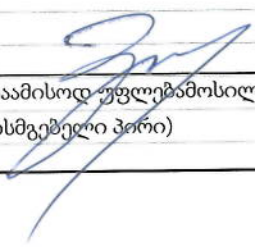 აამისოდ უფლებამოსილ
სმგებელი პირი)